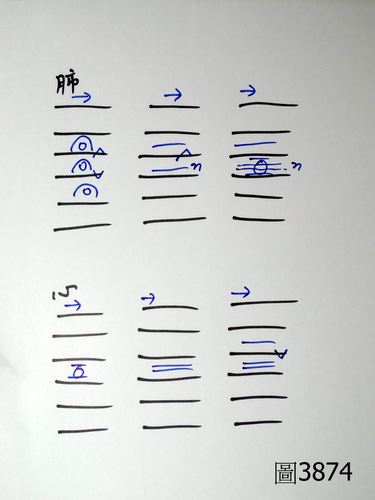 肺
n n
圖3874